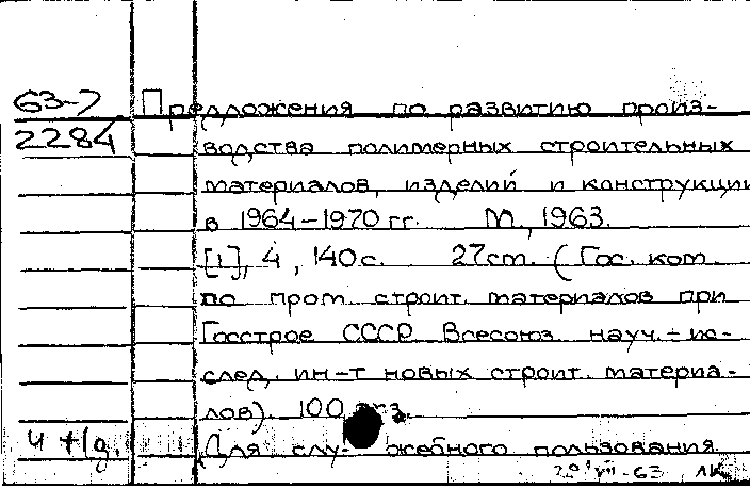 63-7 Предложения по развитию произ-
2284 водства полимерных строительных
материалов, изделий и конструкции
в 1964-1970 гг. М., 1963.
[1], 4, 140с. 27см. (Гос. ком.
по пром. строит. материалов при
Госстрое СССР. Всесоюз. науч.-ис-
след. ин-т новых строит. материа-
лов). 100 экз.
Для слу- жебного пользования
29 VII-63 ЛК